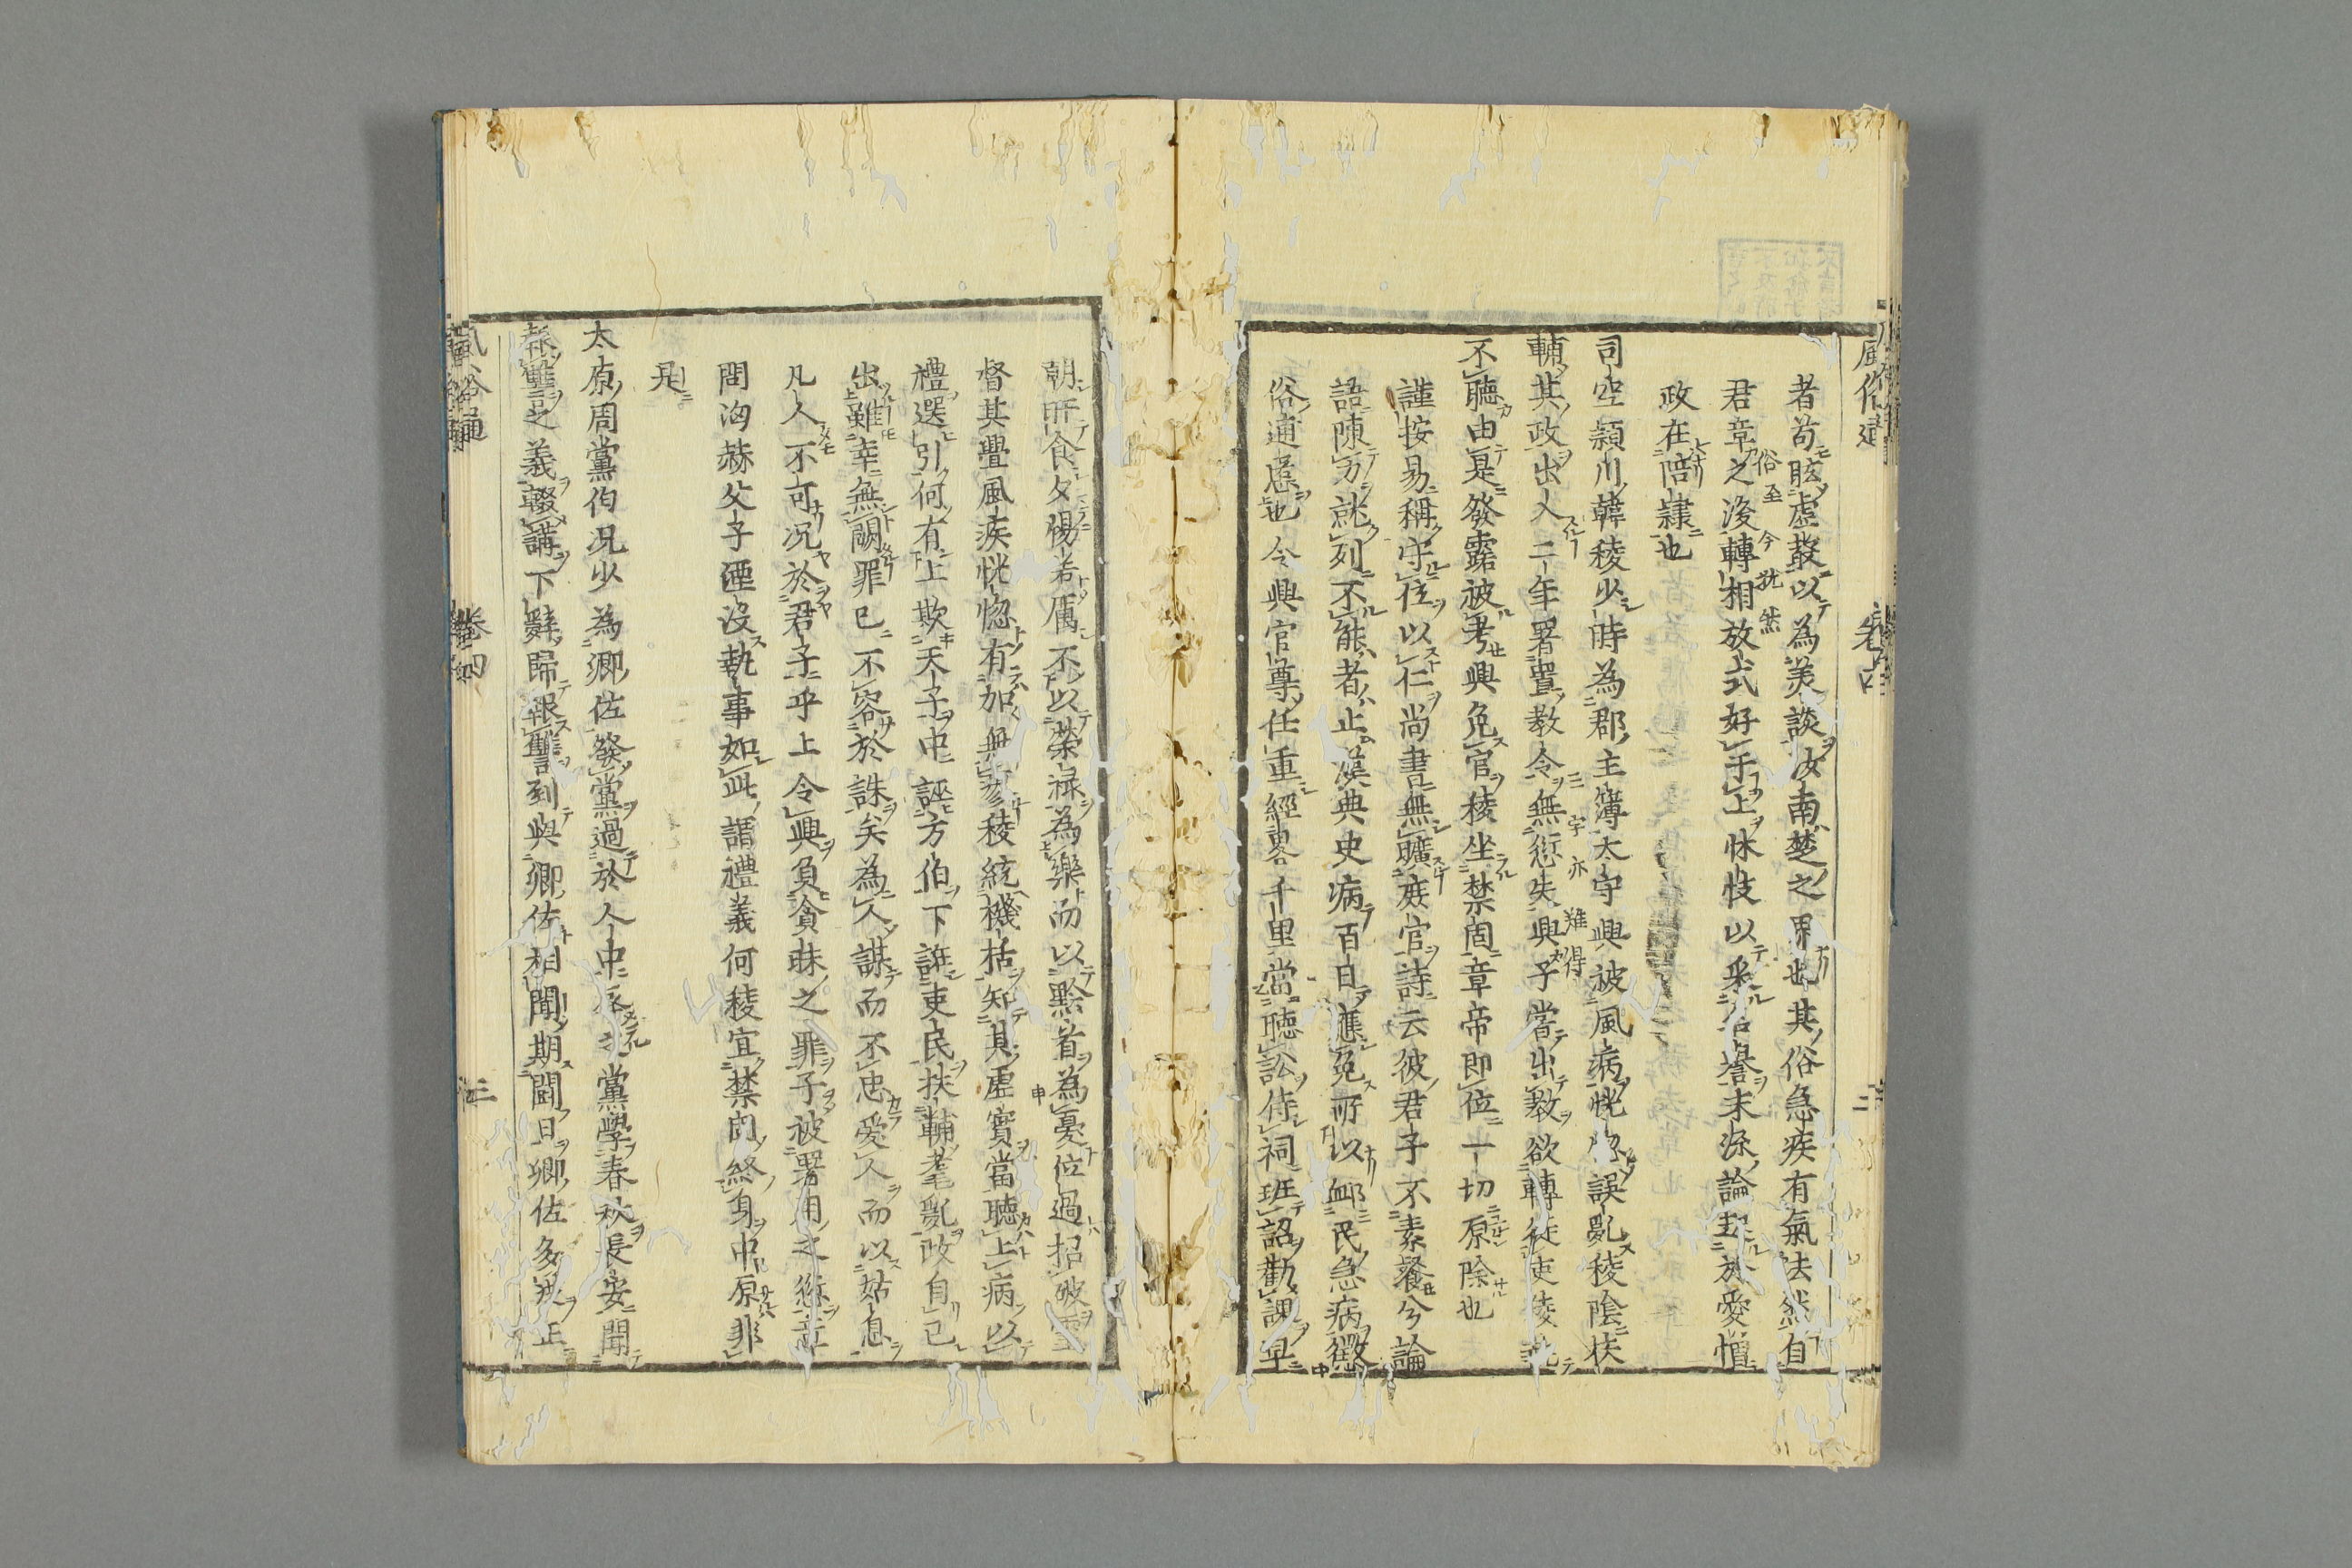 風俗通
卷四
二
者苟眩虛聲以為美談汝南楚之界也其俗急疾有氣决然自
君章之後轉相放式好干上怵忮以采名譽末流論起於愛憎
俗至今扰然
政在陪隷也
司空潁川韓稜少時為郡主簿太守興被風病恍忽誤亂稜陰扶
輔其政出入二年署置教令無愆失興子嘗出教欲轉徙吏稜
三字亦難得
不聽由是發露被考興免官稜坐禁固章帝即位一切原除也
謹按易稱守位以仁尚書無曠庶官詩云彼君子不素餐兮論
語陳力就列不能者止漢典吏病百日應免所以卹民急病懲
俗逋慝也今興官尊任重經畧千里當聽訟侍祠班詔勸課早
朝旰食夕惕若厲不以榮祿為樂而以黔首為憂位過招破
督其釁風疾恍惚有加無瘳稜統機括知其虛實當聽上病以
禮選引何有上欺天子中誣方伯下誑吏民扶輔耄亂政自已
出雖幸無闕罪已不容於誅矣為人謀而不忠愛人而以姑息
凡人不可况於君子乎上令興負貪昧之罪子被署用之愆章
問洶赫父子湮沒執事如此謂禮義何稜宜禁固終身中原非
是
太原周黨伯况少為鄉佐發黨過於人中辱之黨學春秋長安聞
報讎之義輟講下辭歸報讎到與鄉佐相聞期鬪日鄉佐多從正
風俗通
卷四
三